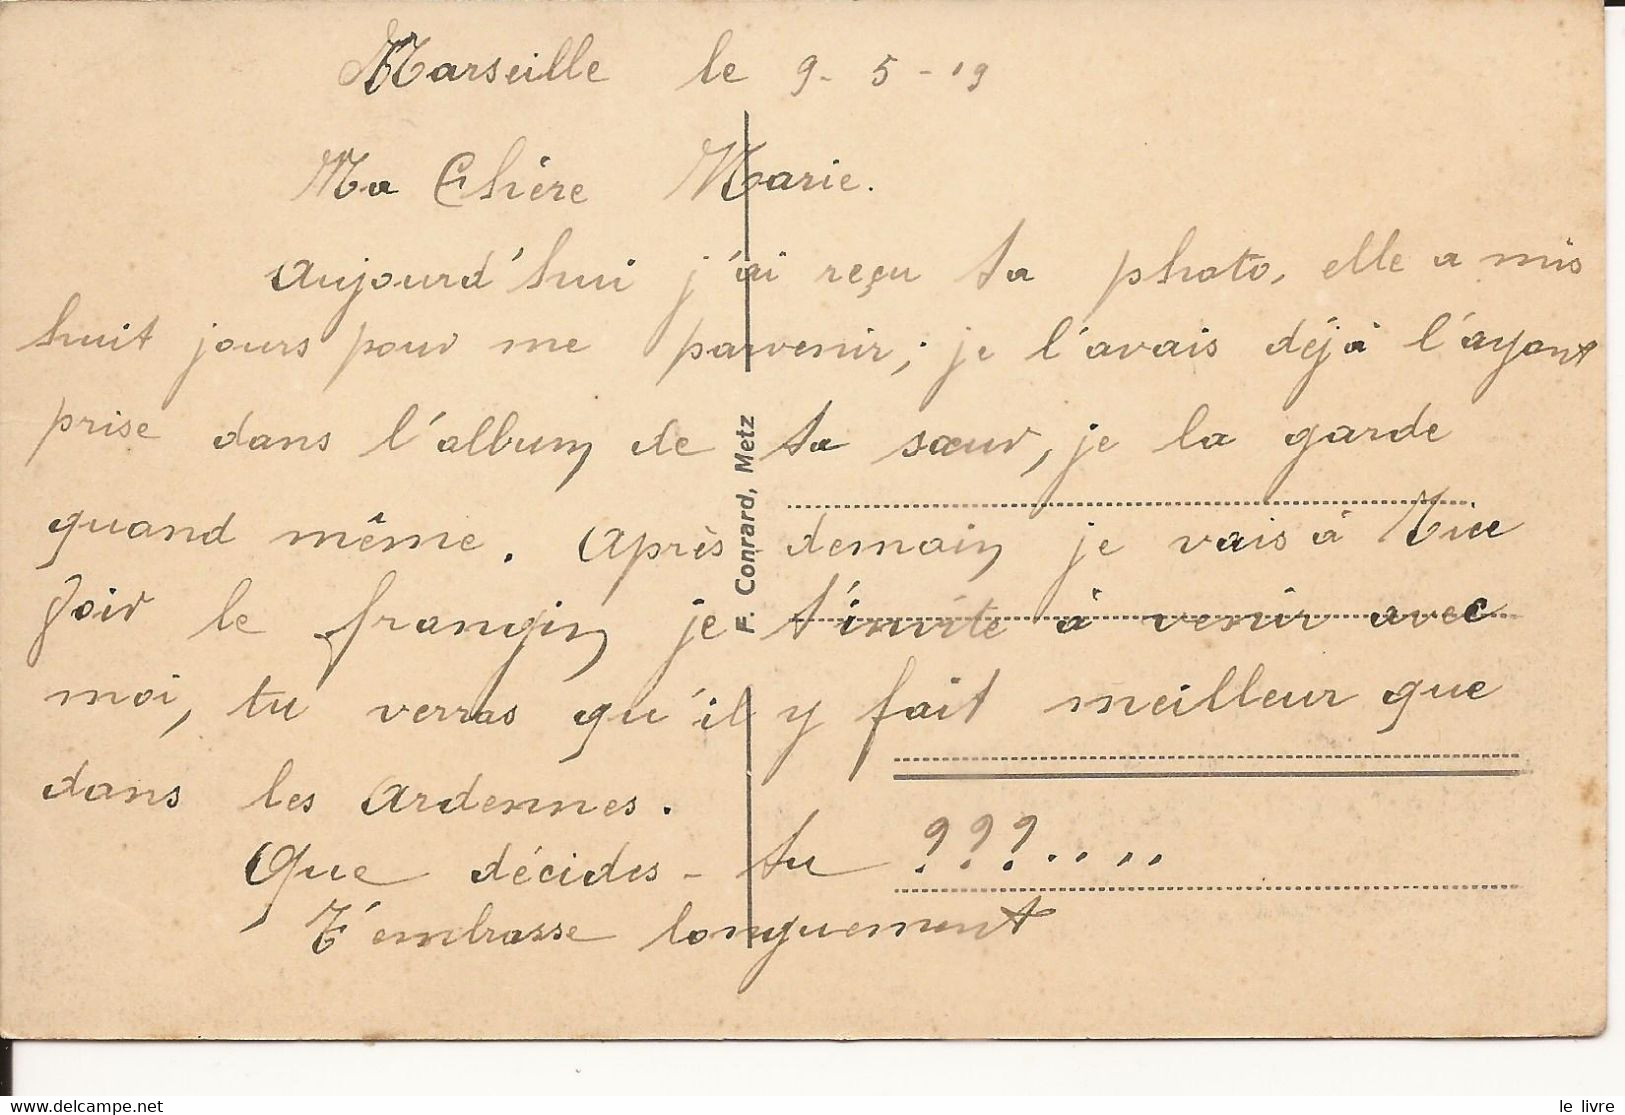 Marseille le 9-5-19
Ma Chère Marie.
Aujourd'hui j'ai reçu ta photo, elle a mis
huit jours pour me parvenir; je l'avais déjà l'ayant
prise dans l'album de ta sœur, je la garde
quand même. Après-demain je vais à Nice
Voir le frangin je t'invite à venir avec
moi, tu verras qu'il y fait meilleur que
dans les Ardennes.
Que décides-tu ???....
T'embrasse longuement
F. Conrard, Metz
www.delcampe.net
le livre